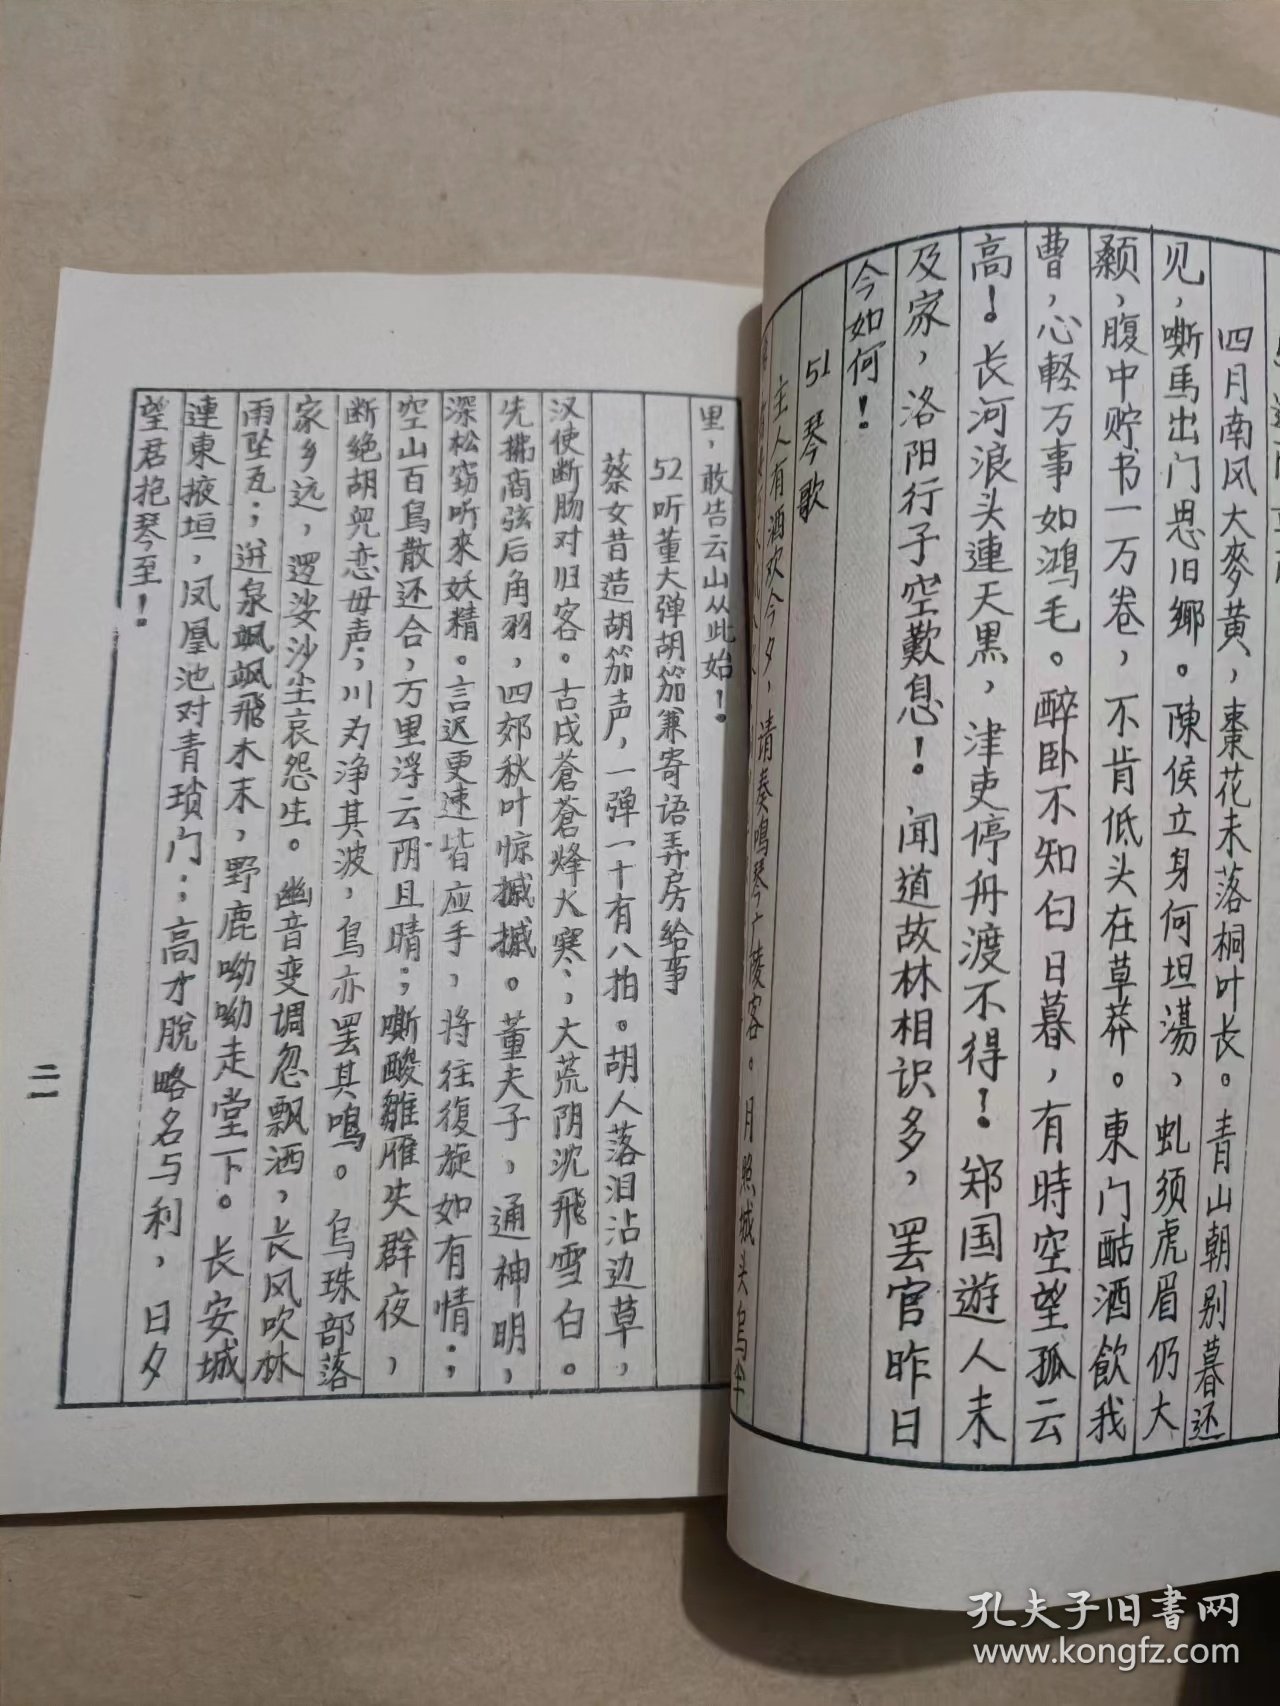 四月南风大麥黄，棗花未落桐叶长。青山朝别暮还
见，嘶馬出门思旧鄉。陳侯立身何坦蕩，虬须虎眉仍大
顙，腹中贮书一万卷，不肯低头在草莽。東门酤酒飲我
曹，心軽万事如鸿毛。醉卧不知白日暮，有時空望孤云
高！长河浪头連天黑，津吏停舟渡不得！郑国遊人未
及家，洛阳行子空歎息！闻道故林相识多，罢官昨日
今如何！
51 琴歌
主人有酒欢今夕，请奏鳴琴广陵客。月照城头乌半
里，敢告云山从此始！
52 听董大弹胡笳兼寄语弄房给事
蔡女昔造胡笳声，一弹一十有八拍。胡人落泪沾边草，
汉使断肠对归客。古戍蒼蒼烽火寒，大荒阴沈飛雪白。
先拂商弦后角羽，四郊秋叶惊摵摵。董夫子，通神明，
深松窃听來妖精。言迟更速皆应手，将往復旋如有情；
空山百鳥散还合，万里浮云阴且晴；嘶酸雛雁失群夜，
断绝胡兒恋母声；川为净其波，鳥亦罢其鳴。乌珠部落
家乡远，逻娑沙尘哀怨生。幽音变调忽飘洒，长风吹林
雨坠瓦；迸泉飒飒飛木末，野鹿呦呦走堂下。长安城
連東掖垣，凤凰池对青琐门；高才脱略名与利，日夕
望君抱琴至！
二一
孔夫子旧書网
www.kongfz.com